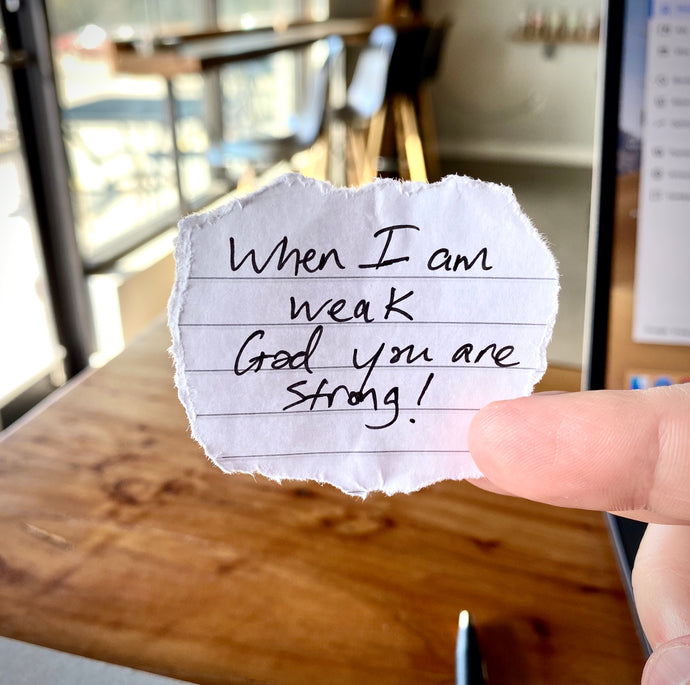 When I am
weak
God you are
strong!